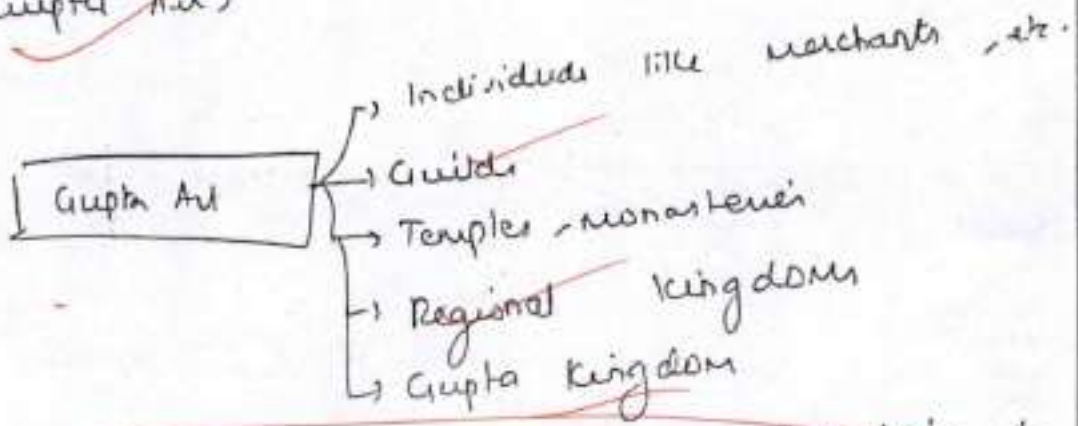 Gupta Art
Individuals like merchants, etc.
Guilds
Gupta Art
Temples, monasteries
Regional kingdoms
Gupta Kingdom